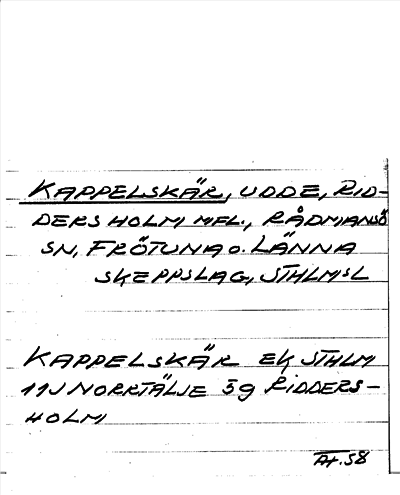 KAPPELSKÄR, UDDE, RID-
DERSHOLM MFL., RÅDMANSÖ
SN, FRÖTUNA O. LÄNNA
SKEPPSLAG, STHLMSL
KAPPELSKÄR EK STHLM
11J NORRTÄLJE 3g RIDDERS-
HOLM
.58